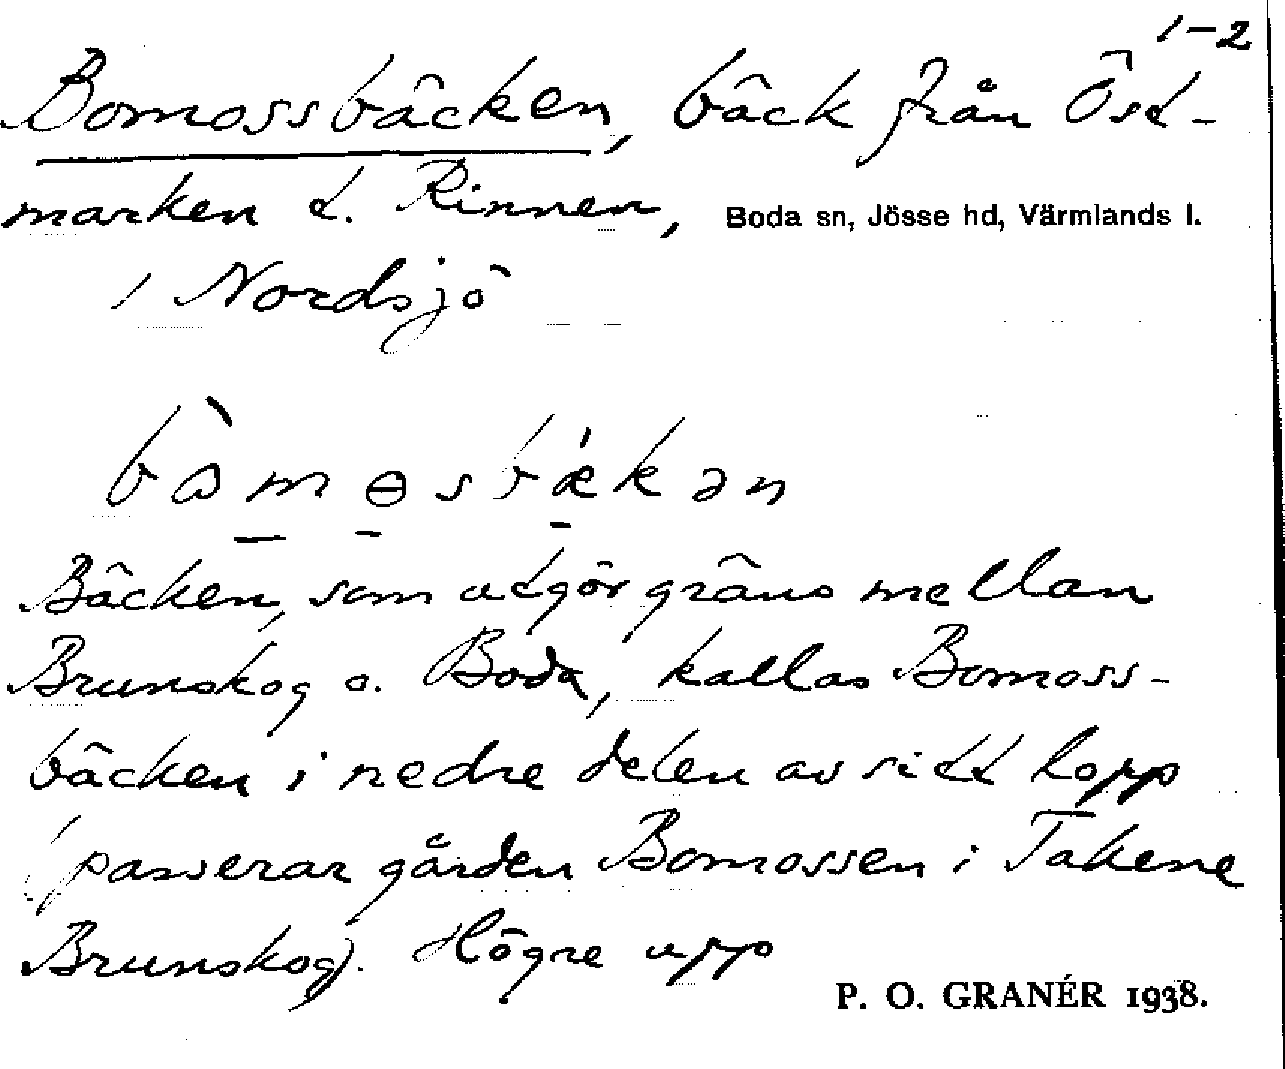 1-2
Bomossbäcken, bäck från Öst-
marken t. Rinnen, Boda sn, Jösse hd, Värmlands l.
i Nordsjö
bòmɵsbǽkən
Bäcken, som utgör gräns mellan
Brunskog o. Boda, kallas Bomoss-
bäcken i nedre delen av sitt lopp
(passerar gården Bomossen i Takene
Brunskog). Högre upp
P. O. GRANÉR 1938.